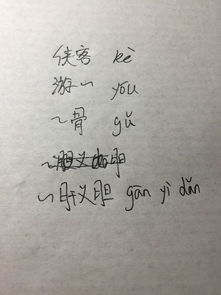 侠客 kè
游～ yóu
～骨 gǔ
～肝义胆 gān yì dǎn